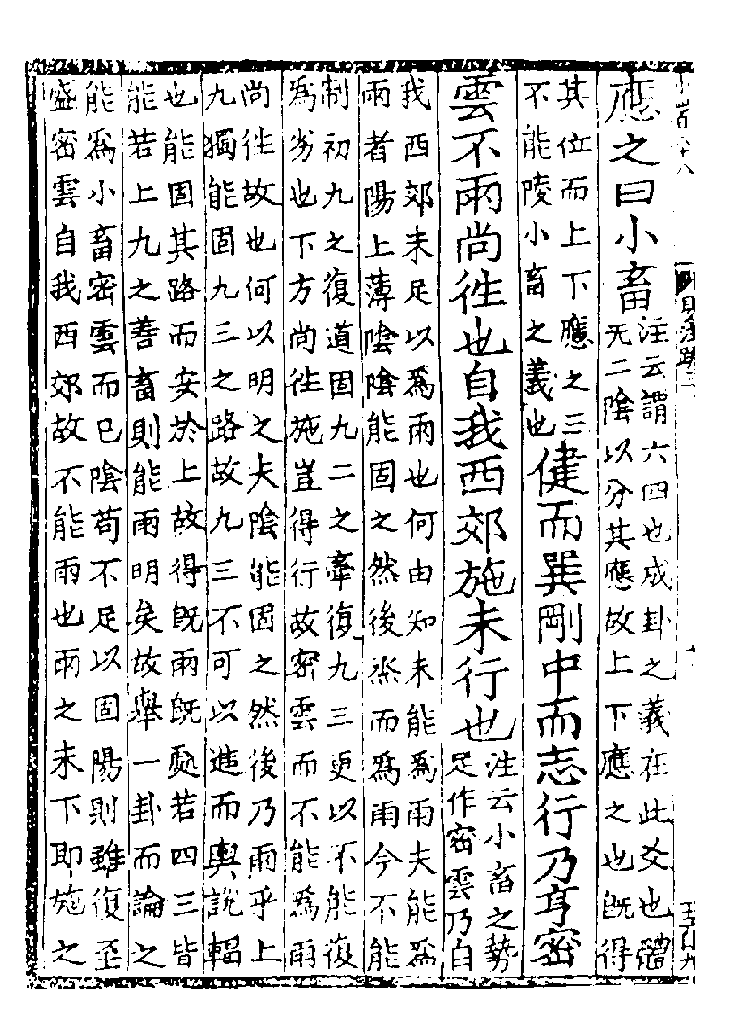 應之曰小畜
注云謂六四也成卦之義在此爻也體
无二陰以分其應故上下應之也既得
其位而上下應之三
不能陵小畜之義也
健而巽剛中而志行乃亨密
雲不雨尚徃也自我西郊施未行也
注云小畜之勢
足作密雲乃自
我西郊未足以為雨也何由知未能為雨夫能為
雨者陽上薄陰陰能固之然後烝而為雨今不能
制初九之復道固九二之牽復九三更以不能復
為劣也下方尚徃施豈得行故密雲而不能為雨
尚徃故也何以明之夫陰能固之然後乃雨乎上
九獨能固九三之路故九三不可以進而輿說輻
也能固其路而安於上故得既雨既處若四三皆
能若上九之善畜則能雨明矣故舉一卦而論之
能為小畜密雲而已陰苟不足以固陽則雖復至
盛密雲自我西郊故不能雨也雨之未下即施之